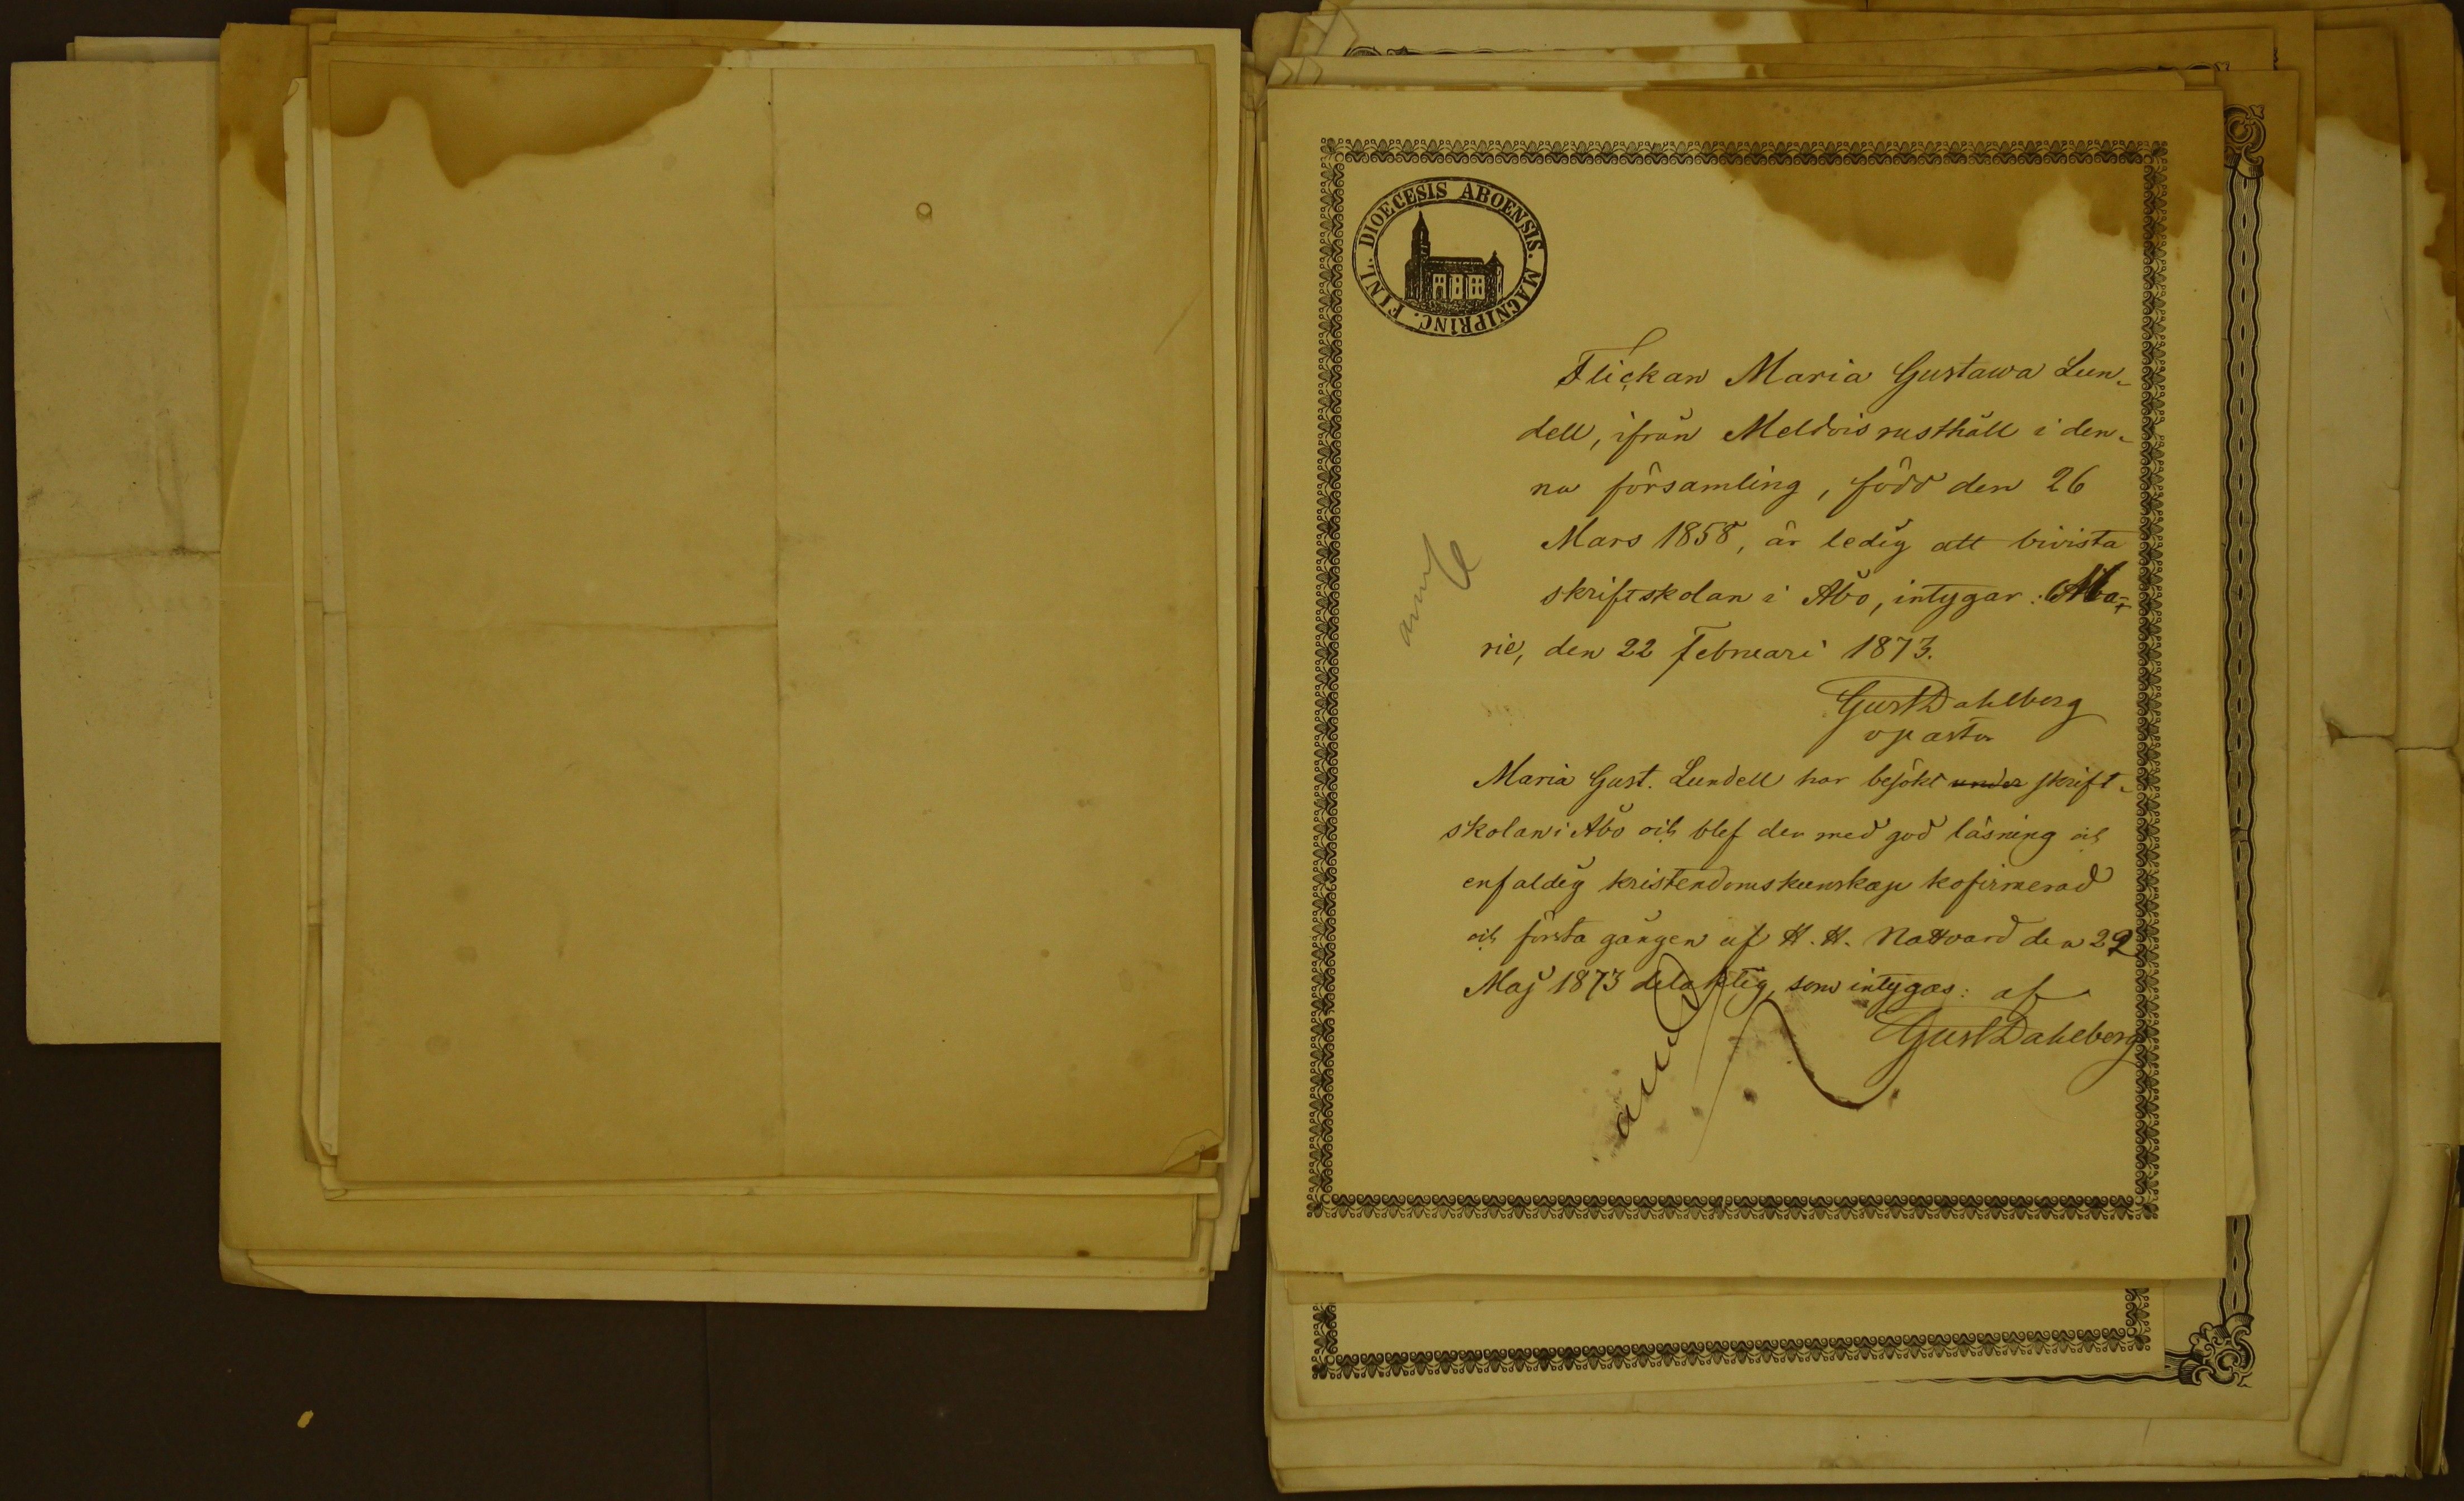 DIOECESIS ABOENSIS. MAGNIPRINC. FINL.
Flickan Maria Gustawa Lun-
dell, ifrån Meldois rusthåll i den-
na församling, född den 26
Mars 1858, är ledig att bivista
skriftskolan i Åbo, intygar: Ma-
rie, den 22 Februari 1873.
Gust Dahlberg
v pastor
Maria Gust. Lundell har besökt under skrift-
skolan i Åbo och blef der med god läsning och
enfaldig kristendomskunskap kofirmerad
och första gången af H. H. Nattvard den 22
Maj 1873 delaktig, som intygas: af
Gust Dahlberg